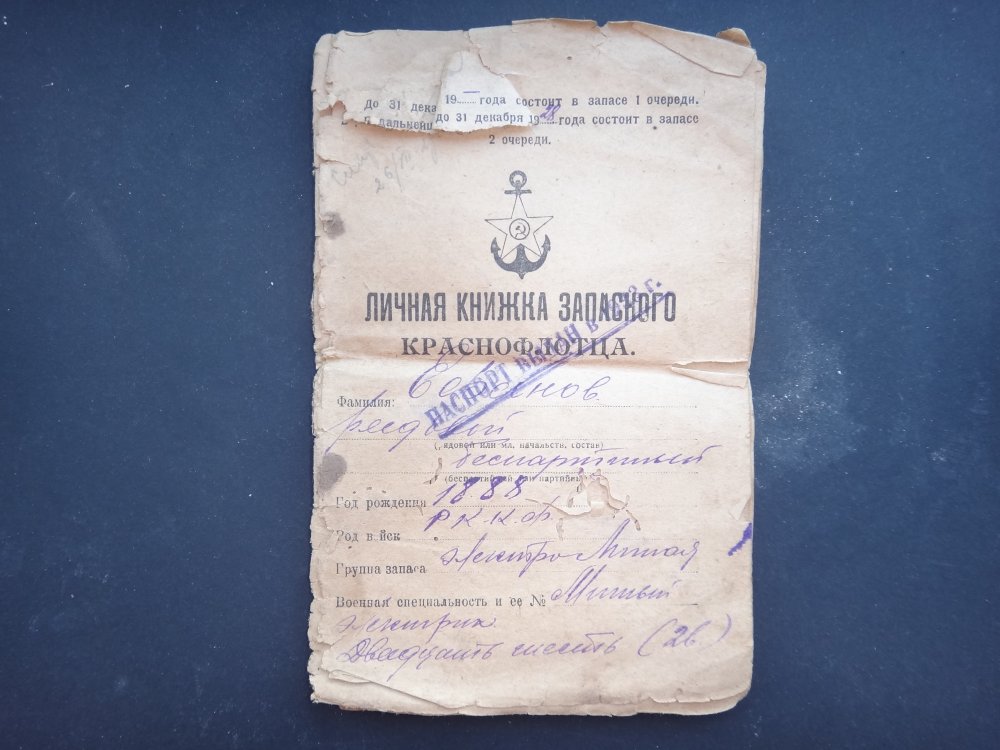 До 31 дека 19 года состоит в запасе 1 очереди.
В дальнейш до 31 декабря 1928 года состоит в запасе
2 очереди.
ЛИЧНАЯ КНИЖКА ЗАПАСНОГО
КРАСНОФЛОТЦА.
ПАСПОРТ ВЫДАН В г.
Фамилия:
рядовой
(рядовой или мл. начальств. состав)
беспартийный
(беспартийный или партийн
Год рождения 1888
Род войск Р.К.К.Ф.
Группа запаса Электро-Минная
Военная специальность и ее № Минный
электрик
Двадцать шесть (26)